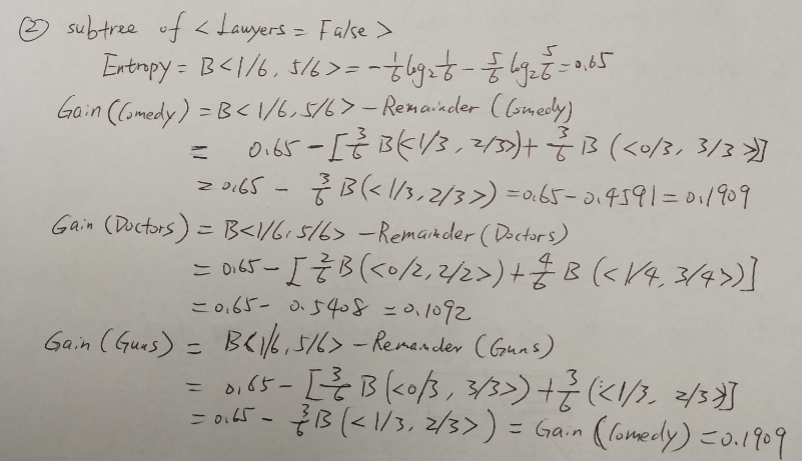 ② subtree of <Lawyers = False>
Entropy = B<1/6, 5/6> = -1/6 log₂ 1/6 - 5/6 log₂ 5/6 = 0.65
Gain (Comedy) = B<1/6, 5/6> - Remainder (Comedy)
= 0.65 - [3/6 B(<1/3, 2/3>) + 3/6 B (<0/3, 3/3>)]
= 0.65 - 3/6 B(<1/3, 2/3>) = 0.65 - 0.4591 = 0.1909
Gain (Doctors) = B<1/6, 5/6> - Remainder (Doctors)
= 0.65 - [2/6 B(<0/2, 2/2>) + 4/6 B (<1/4, 3/4>)]
= 0.65 - 0.5408 = 0.1092
Gain (Guns) = B<1/6, 5/6> - Remander (Guns)
= 0.65 - [3/6 B (<0/3, 3/3>) + 3/6 (<1/3, 2/3>)]
= 0.65 - 3/6 B (<1/3, 2/3>) = Gain (Comedy) = 0.1909